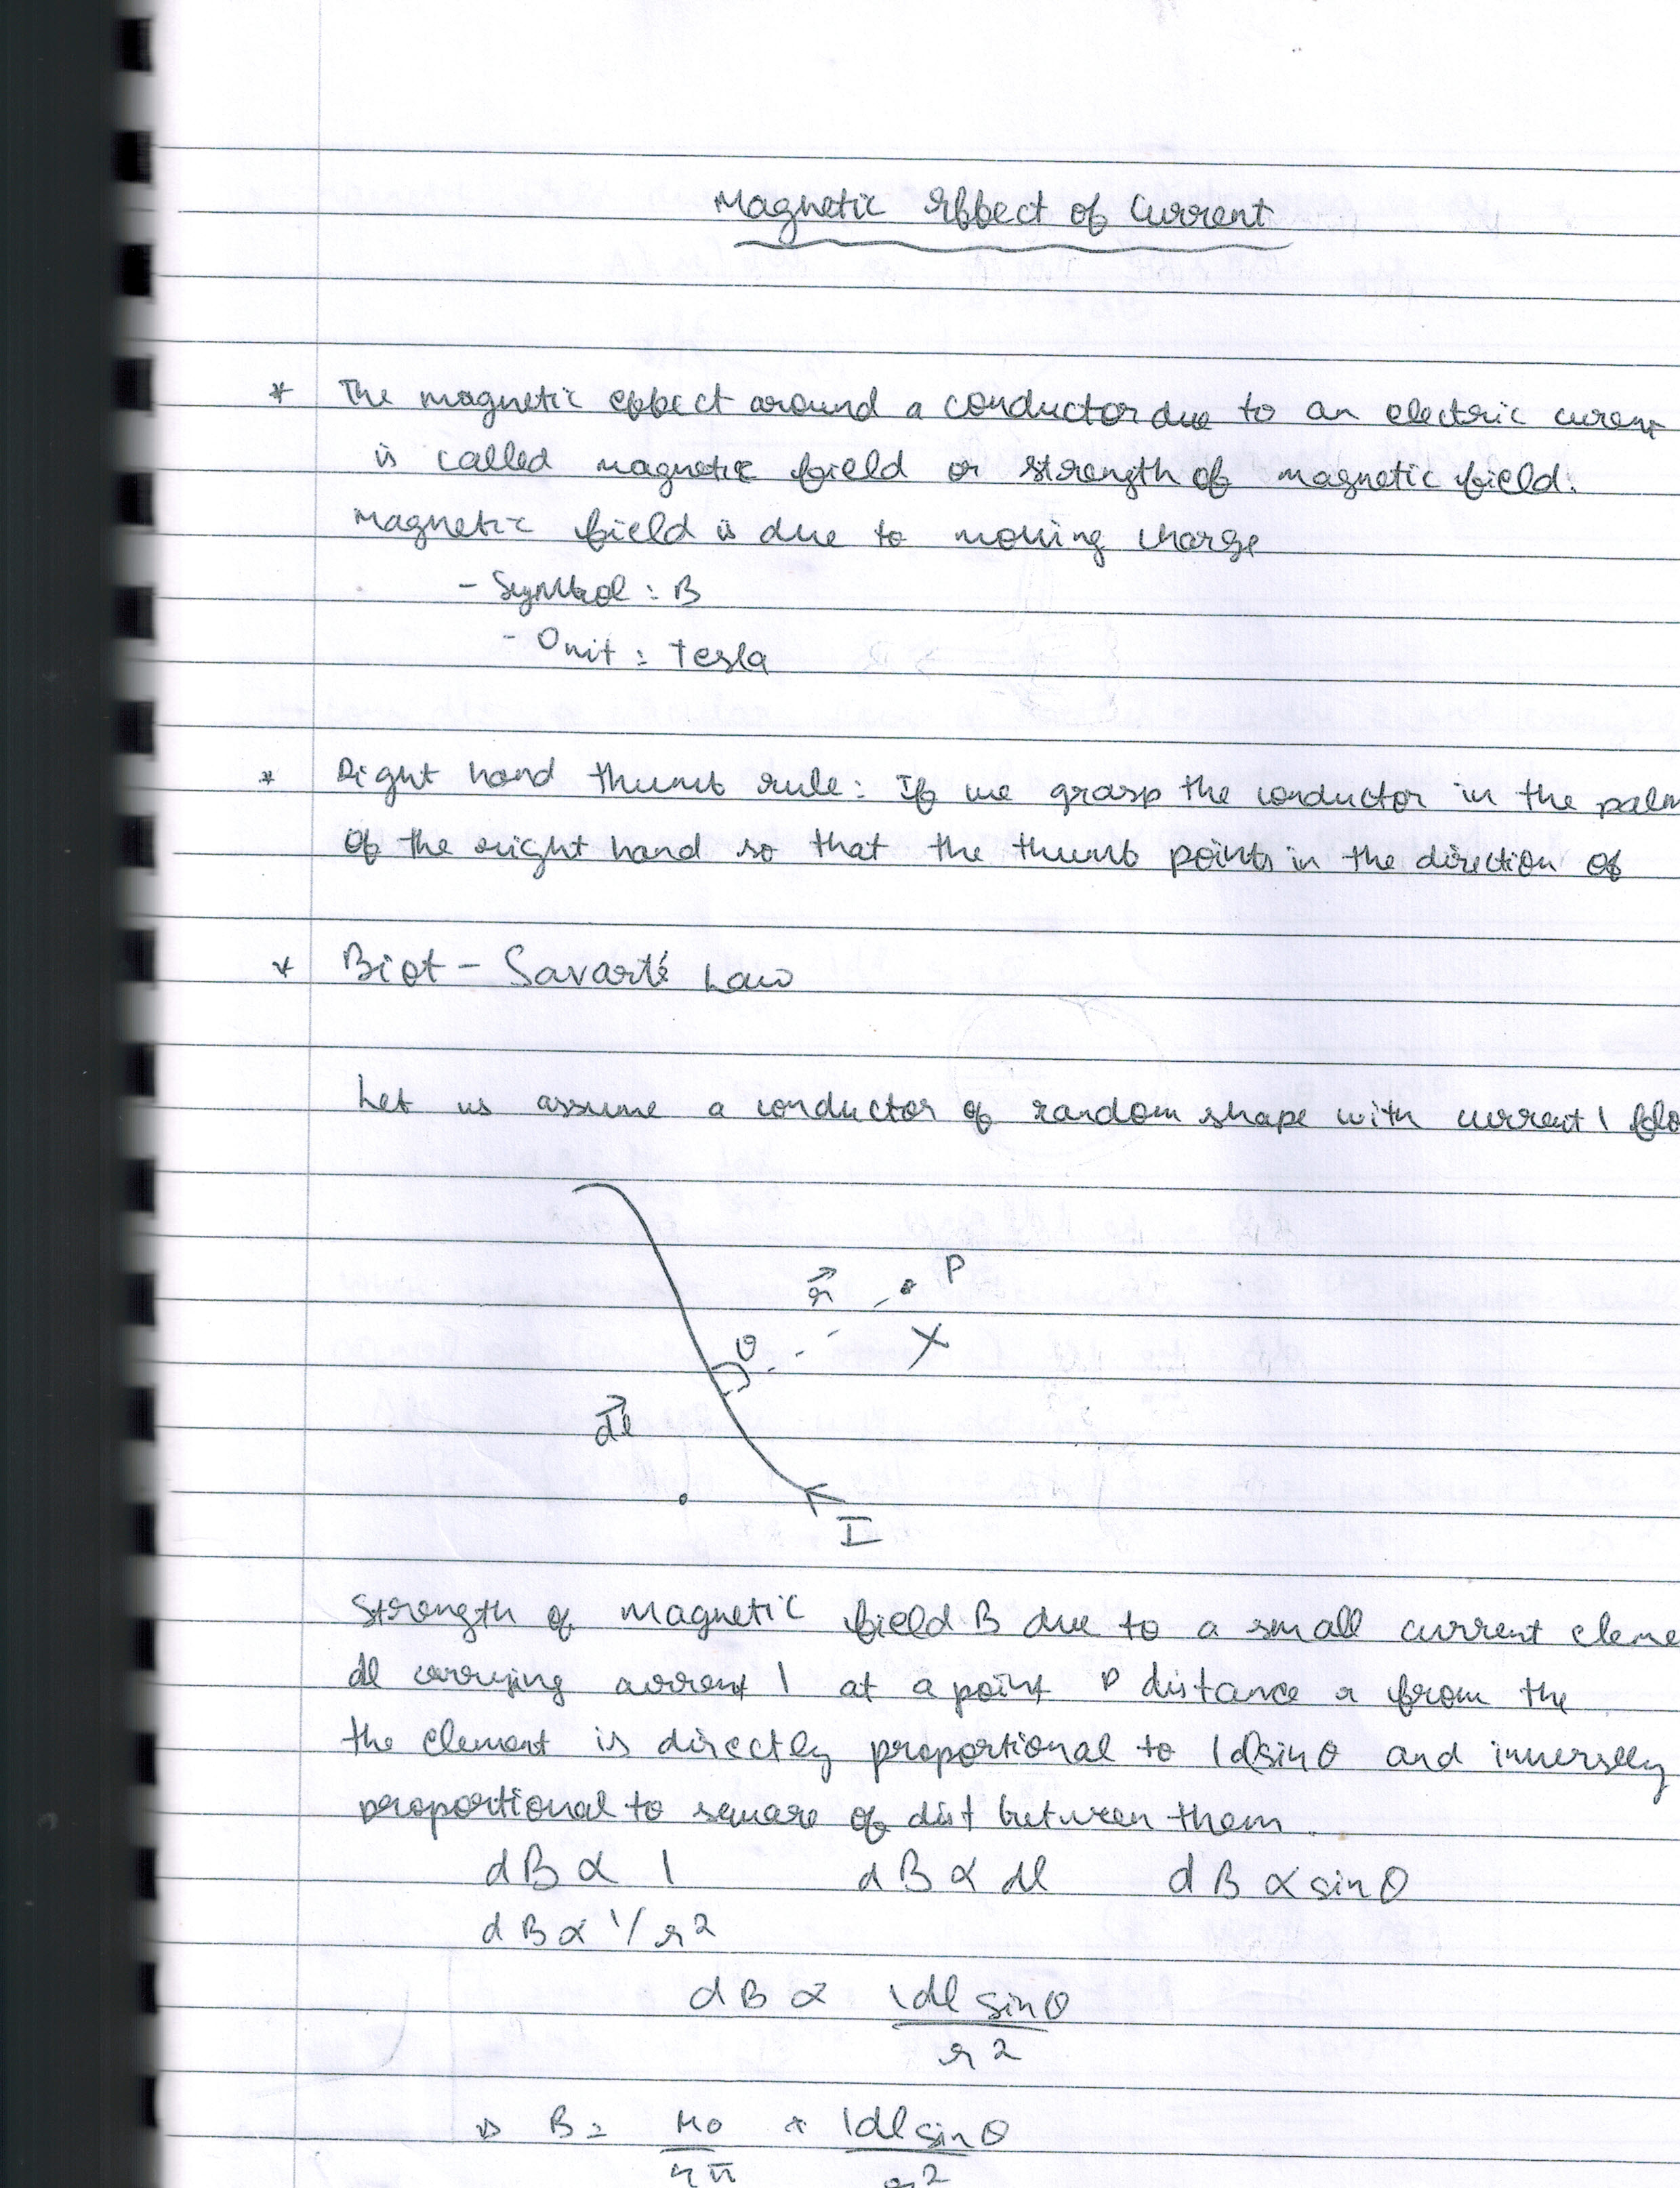 Magnetic Effect of Current
* The magnetic effect around a conductor due to an electric curent
is called magnetic field or strength of magnetic field.
Magnetic field is due to moving charge
- Symbol : B
- Unit : Tesla
* Right hand thumb rule : If we grasp the conductor in the palm
of the right hand so that the thumb points in the direction of
* Biot - Savart's Law
Let us assume a conductor of random shape with current I flo
r⃗ P
θ X
dl⃗
I
Strength of magnetic field B due to a small current eleme
dl carrying current I at a point P distance r from the
the element is directly proportional to Idlsinθ and inversely
proportional to square of dist between them.
dB ∝ I dB ∝ dl dB ∝ sinθ
dB ∝ 1/r²
dB ∝ Idl sinθ
r²
B = μ0 * Idl sinθ
4π r²